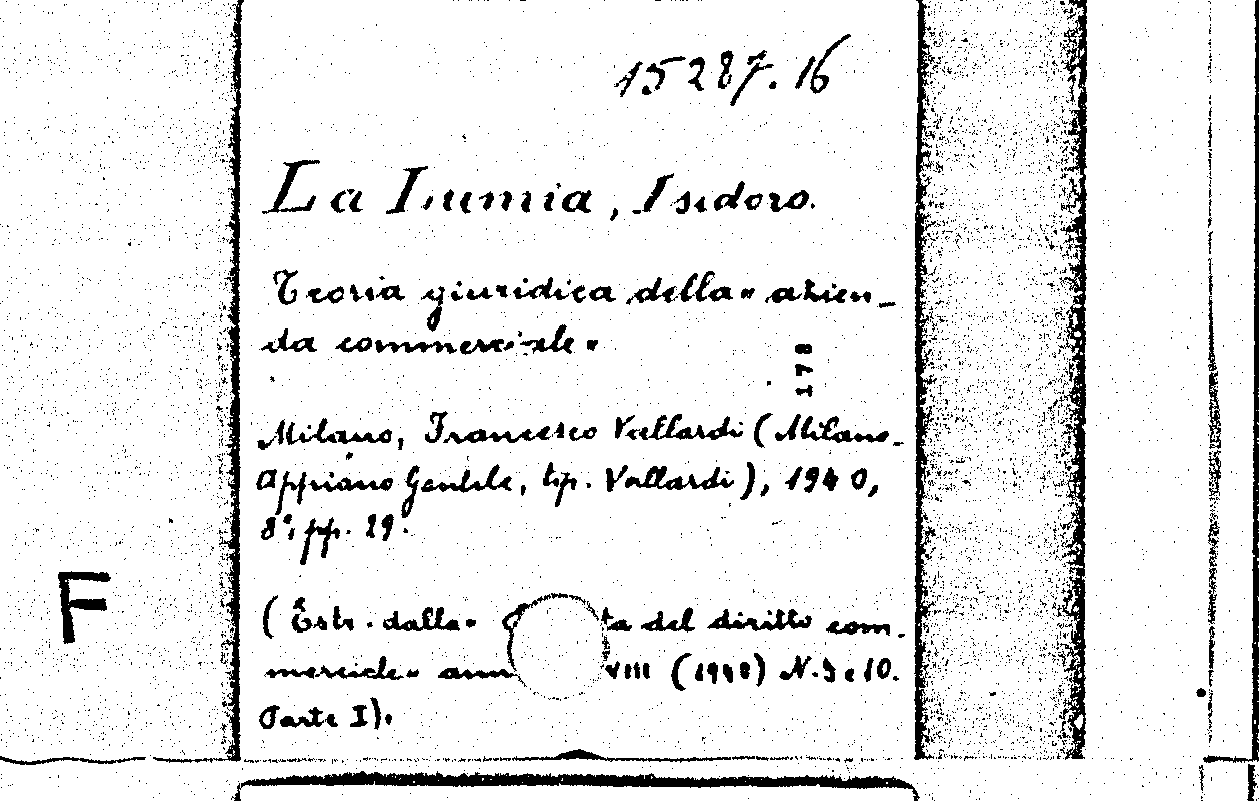 15287.16
La Lumia, Isidoro.
Teoria giuridica della "azien-
da commerciale"
178
Milano, Francesco Vallardi (Milano-
Appiano Gentile, tip. Vallardi), 1940,
8°, pp. 29.
F
(Estr. dalla " ta del diritto com-
merciale" ann VIII (1940) N. 9 e 10.
Parte I).